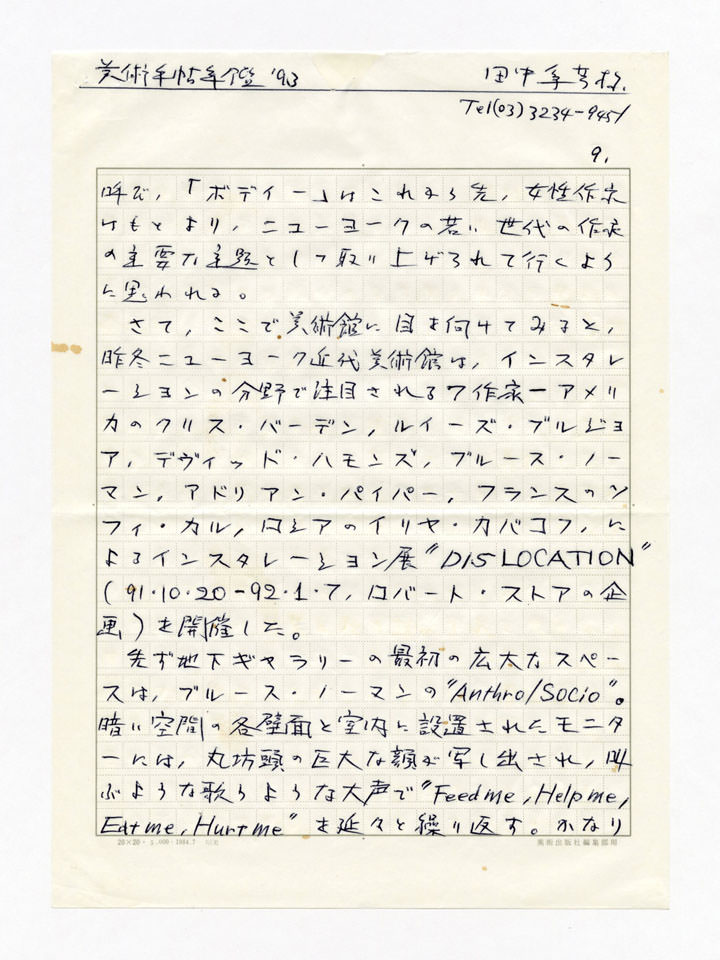 美術手帖年鑑 '93
田中幸
Tel(03)3234-9451
9.
呼び,「ボディー」はこれから先,女性作家
はもとより,ニューヨークの若い世代の作家
の主要な主題として取り上げられて行くよう
に思われる。
さて,ここで美術館に目を向けてみると,
昨冬ニューヨーク近代美術館は,インスタレ
ーションの分野で注目される7作家ーアメリ
カのクリス・バーデン,ルイーズ・ブルジョ
ア,デヴィッド・ハモンズ,ブルース・ノー
マン,アドリアン・パイパー,フランスのソ
フィ・カル,ロシアのイリヤ・カバコフ,に
よるインスタレーション展"DISLOCATION"
(91・10・20-92・1・7,ロバート・ストアの企
画)を開催した。
先ず地下ギャラリーの最初の広大なスペー
スは,ブルース・ノーマンの"Anthro/Socio"。
暗い空間の各壁面と室内に設置されたモニタ
ーには,丸坊頭の巨大な顔が写し出され,叫
ぶような歌うような大声で"Feed me, Help me,
Eat me, Hurt me"を延々と繰り返す。かなり
20×20・5,000・1984.7
美術出版社編集部用